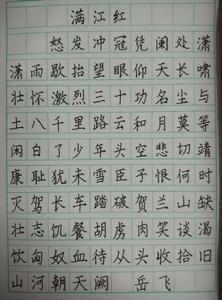 满江红
怒发冲冠凭阑处潇
潇雨歇抬望眼仰天长啸
壮怀激烈三十功名尘与
土八千里路云和月莫等
闲白了少年头空悲切靖
康耻犹未雪臣子恨何时
灭驾长车踏破贺兰山缺
壮志饥餐胡虏肉笑谈渴
饮匈奴血待从头收拾旧
山河朝天阙 岳飞